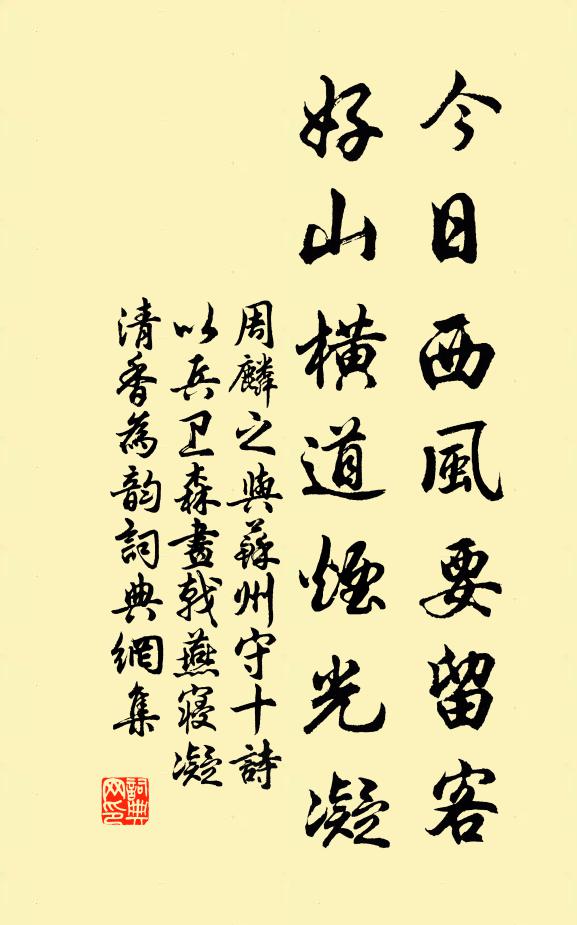 今日西風要留客
好山橫道煙光凝
周麟之與蘇州守十詩
以兵卫森畫戟燕寢凝
清香為韵詞典網集
詞典網印